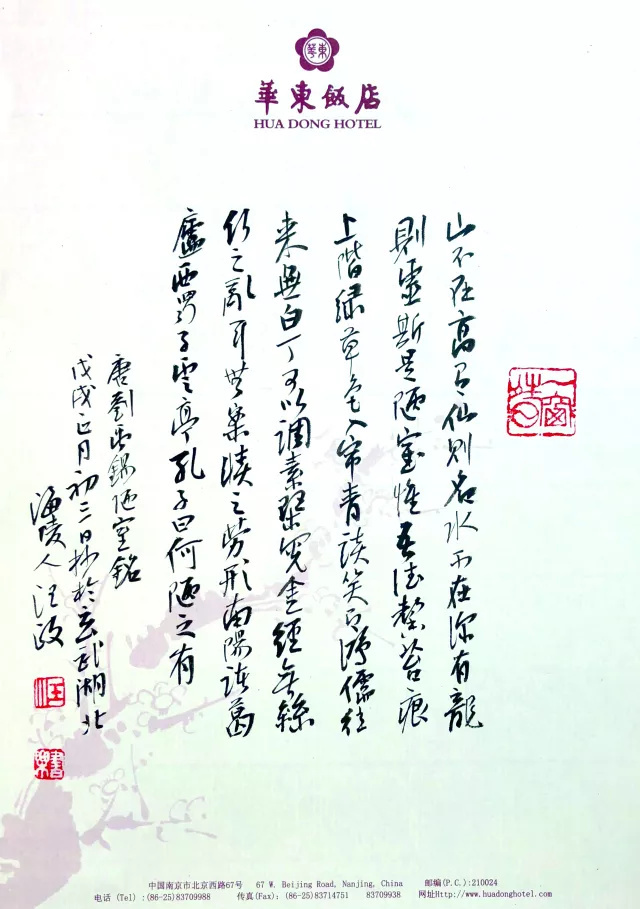 華東
華東飯店
HUA DONG HOTEL
山不在高有仙则名水不在深有龍
則靈斯是陋室惟吾德馨苔痕
上階绿草色入帘青谈笑有鸿儒往
来無白丁可以调素琴阅金經無絲
竹之乱耳無案牍之劳形南陽诸葛
廬西蜀子雲亭孔子曰何陋之有
唐劉禹錫陋室銘
戊戌正月初三日抄於玄武湖北
海陵人汪政
汪
中国南京市北京西路67号 67 W. Beijing Road, Nanjing, China 邮编(P.C.):210024
电话 (Tel) :(86-25)83709988 传真(Fax): (86-25)83714751 83709938 网址Http://www.huadonghotel.com